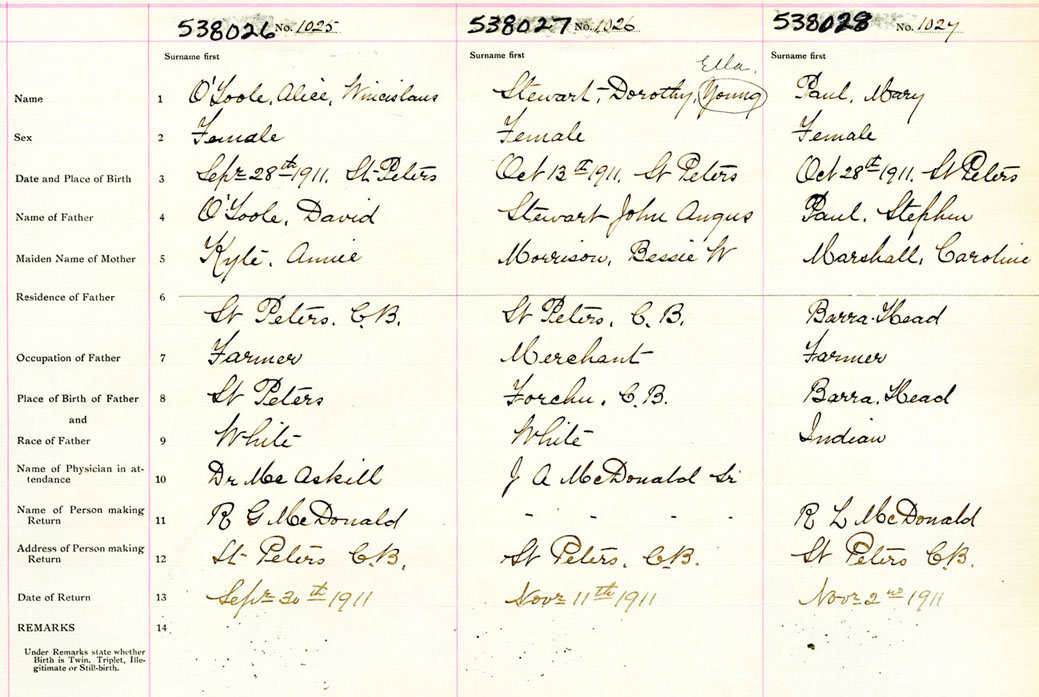 538026 No. 1025 538027 No. 1026 538028 No. 1027
Surname first Surname first Surname first
Ella.
Name 1 O'Toole, Alice, Wincislaus Stewart, Dorothy, Young Paul, Mary
Sex 2 Female Female Female
Date and Place of Birth 3 Sepr 28th 1911. St Peters Oct 13th 1911. St Peters Oct 28th 1911. St Peters
Name of Father 4 O'Toole, David Stewart John Angus Paul, Stephen
Maiden Name of Mother 5 Kyte, Annie Morrison, Bessie W Marshall, Caroline
Residence of Father 6
St Peters. C.B. St Peters, C.B. Barra Head
Occupation of Father 7 Farmer Merchant Farmer
Place of Birth of Father 8 St Peters Forchu, C.B. Barra Head
and
Race of Father 9 White White Indian
Name of Physician in at-
tendance 10 Dr Mc Askill J A McDonald Sr
Name of Person making
Return 11 R G McDonald - - - - R L McDonald
Address of Person making
Return 12 St Peters C.B. St Peters, C.B. St Peters C.B.
Date of Return 13 Sepr 30th 1911 Novr 11th 1911 Novr 2nd 1911
REMARKS 14
Under Remarks state whether
Birth is Twin, Triplet, Ille-
gitimate or Still-birth.